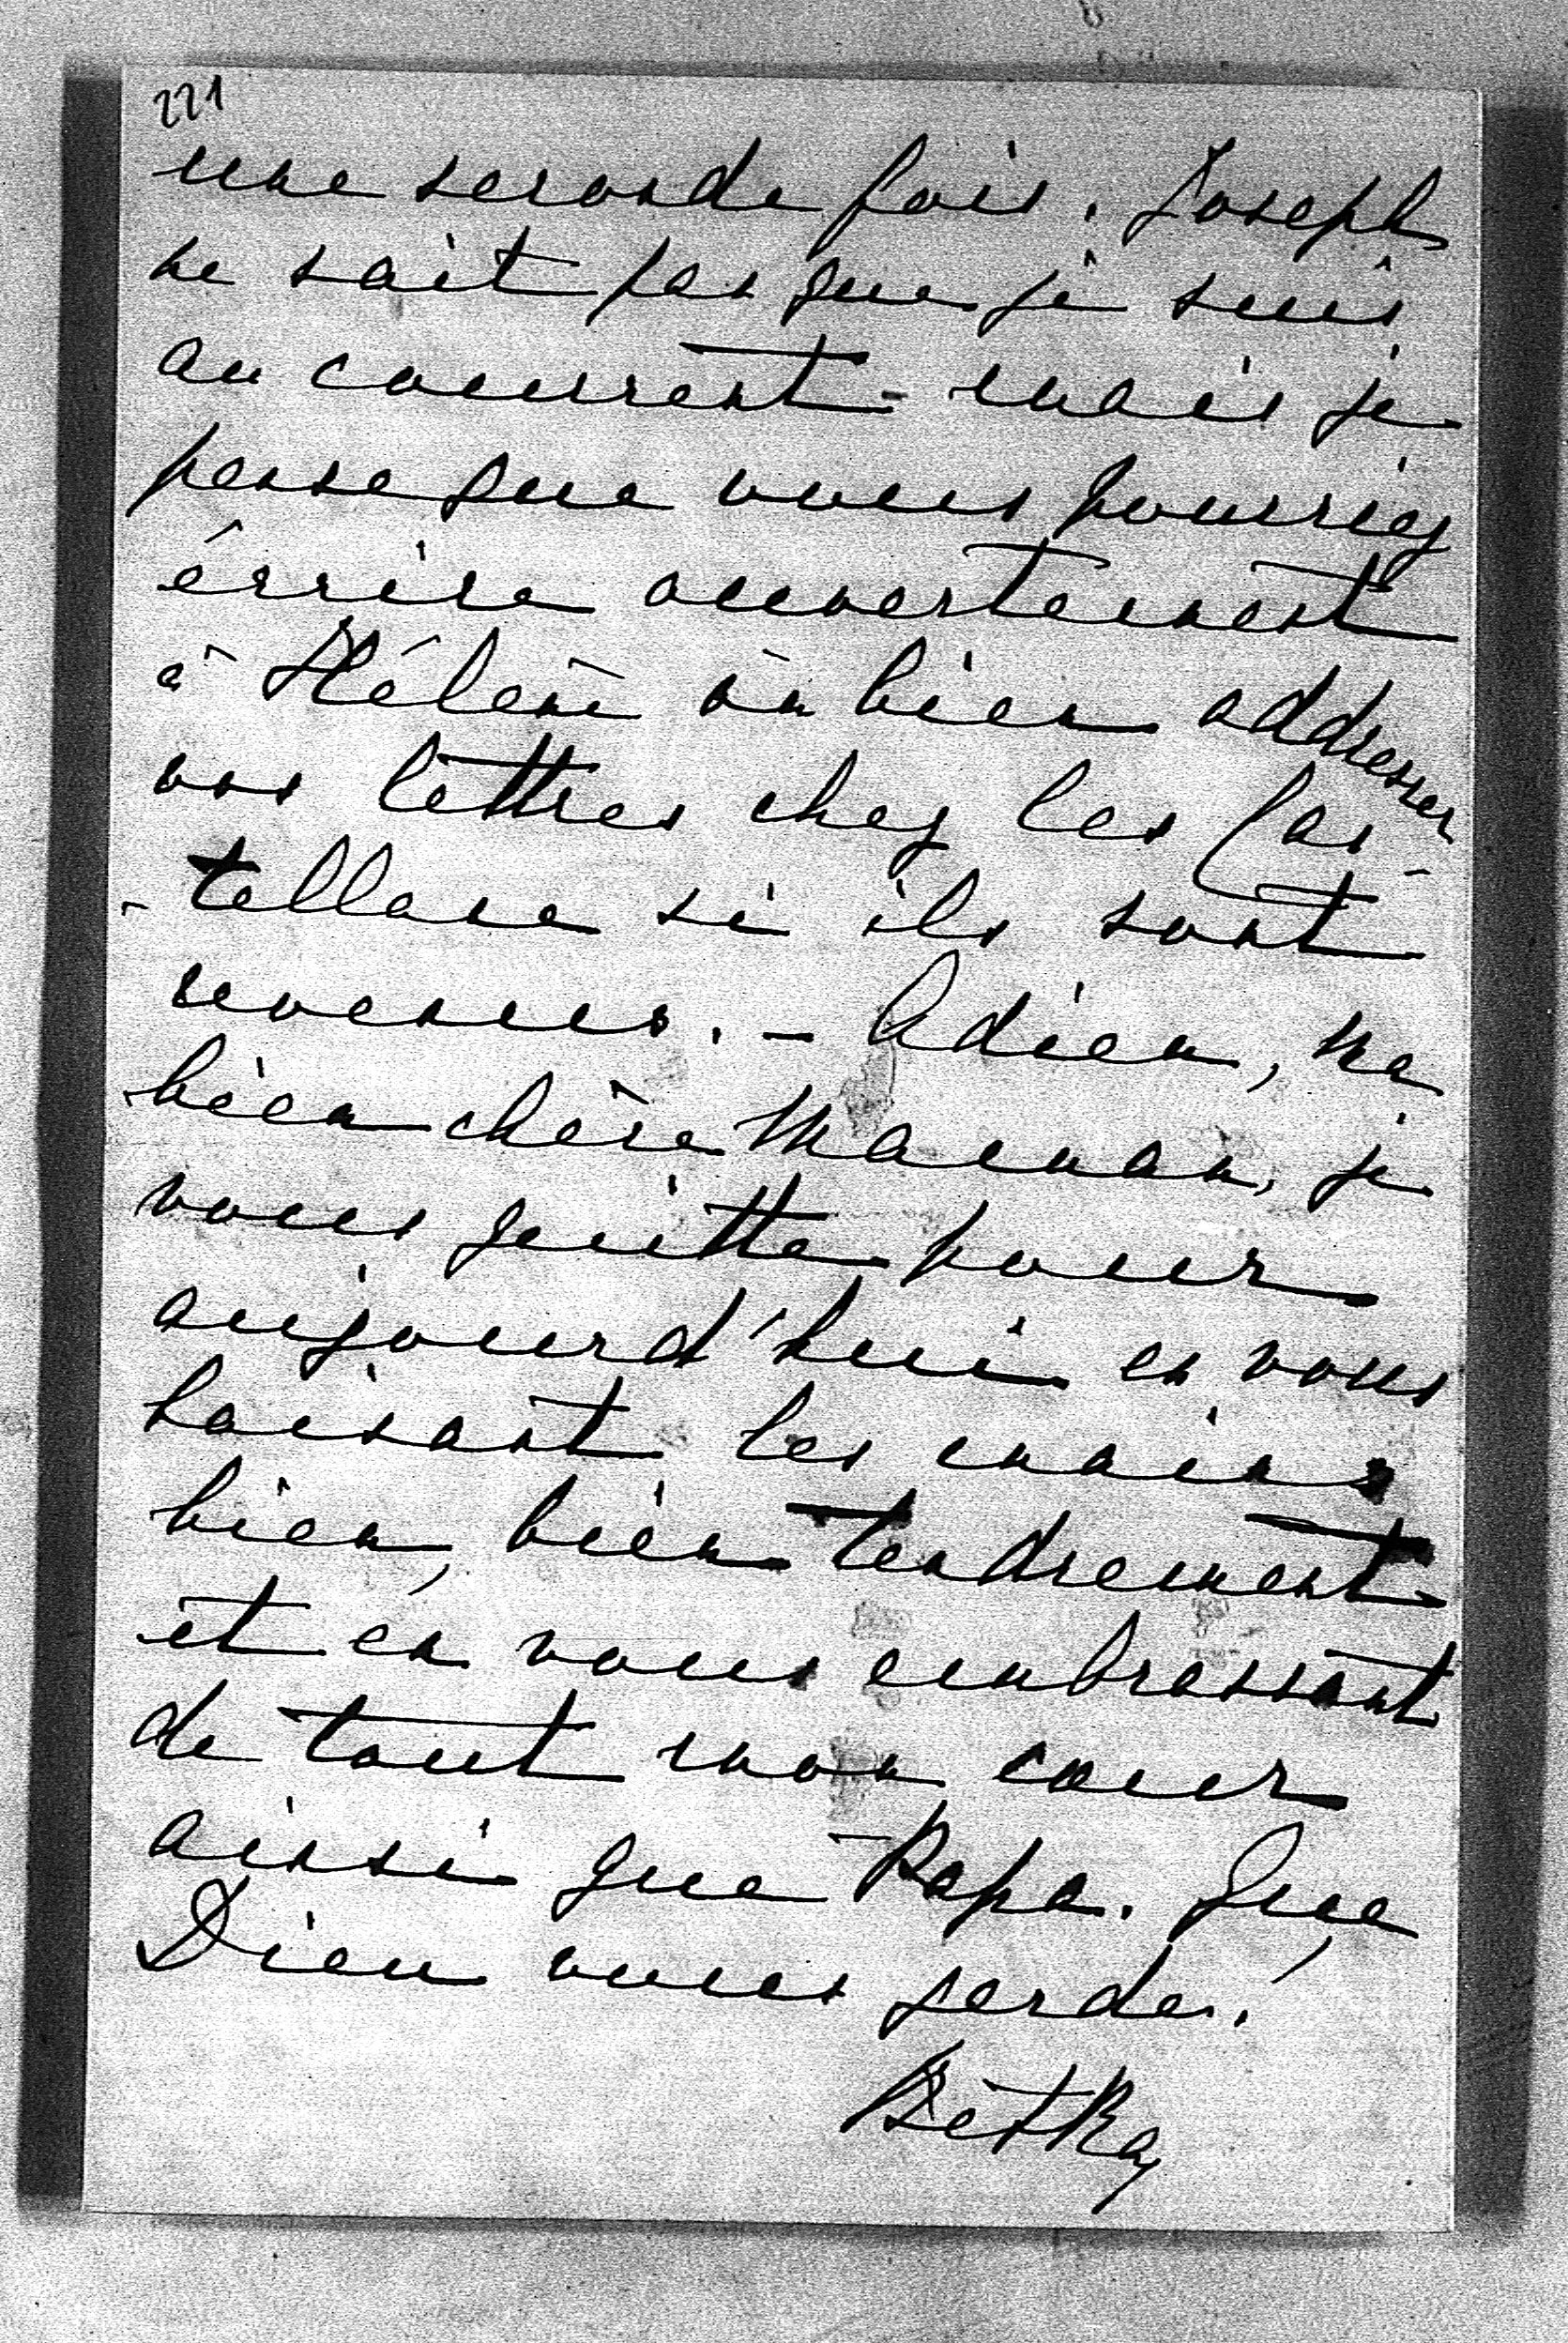 221
une seconde fois. Joseph
ne sait pas que je suis
au courrent - mais je
pense que vous pourriez
écrire ouvertement
à Hélène ou bien addresser
vos lettres chez les Cas-
-tellane si ils sont
revenus. - Adieu, ma
bien chère Maman, je
vous quitte pour
aujourd'hui en vous
baisant les mains
bien, bien tendrement
et en vous embrassant
de tout mon coeur
ainsi que Papa. Que
Dieu vous garde.
Betka